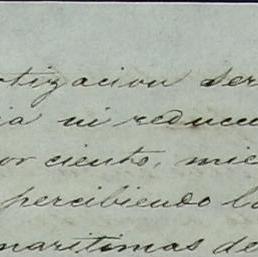 otizacion ser
ia ni reducc
or ciento, mie
percibiendo lo
maritimas de